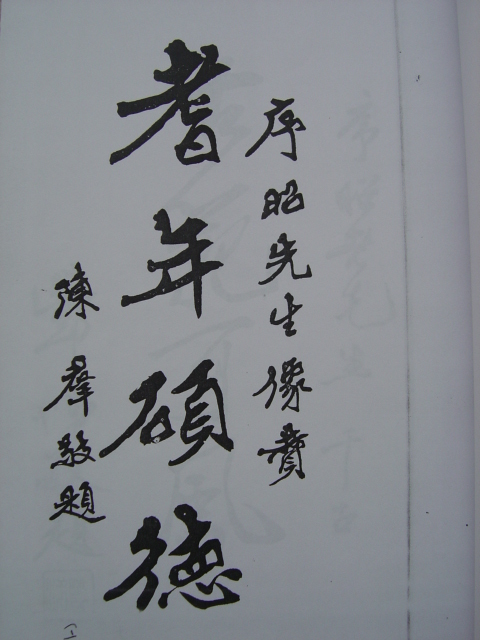 序昭先生像赞
耆年碩德
陳群敬題